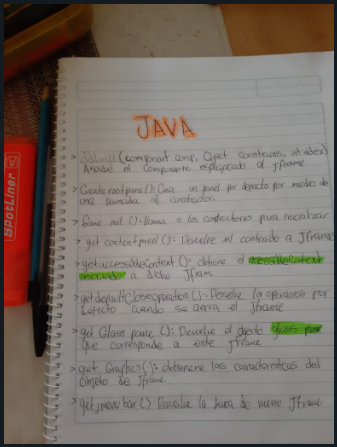 JAVA
> (component comp, Object constraints, int index)
Añade el componente especificado al Jframe
> Create rootpane(): Crea un panel por defecto por medio de
una llamada al constructor.
> frame init (): llama a los constructores para inicializar
> get contentpanel(): Devuelve el contenido a Jframe
> get accessibleContext (): obtiene el accessibleContext
asociado a dicho Jfram.
> get default Close operation(): Devuelve la operacion por
defecto cuando se cierra el Jframe
> get Glass pane (): Devuelve el objeto glass pane
que corresponde a este Jframe
> get Graphics(): obtiene las caracteristicas del
Objeto de Jframe
> get jmenu bar () Devuelve la barra de menu Jframe
SpotLiner